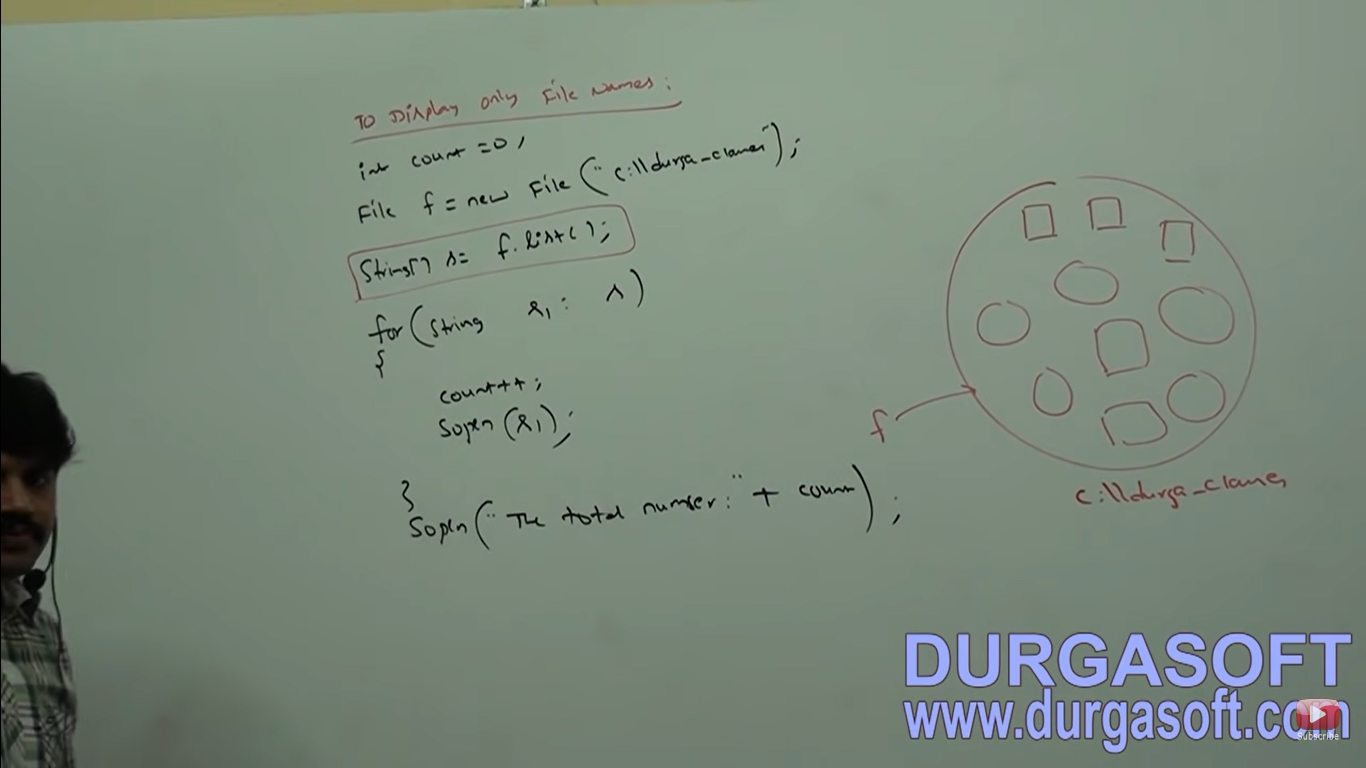 TO Display only File Names:
int count =0;
File f = new File ("c:\\durga_classes");
String[] s= f.list();
for(String s1: s)
{
count++;
Sopln (s1);
}
Sopln("The total number:" + count);
f
c:\\durga_classes
DURGASOFT
www.durgasoft.com
Subscribe